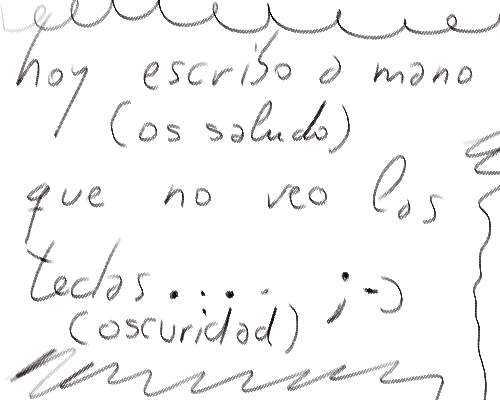 hoy escribo a mano
(os saludo)
que no veo los
teclas..... ;-)
(oscuridad)